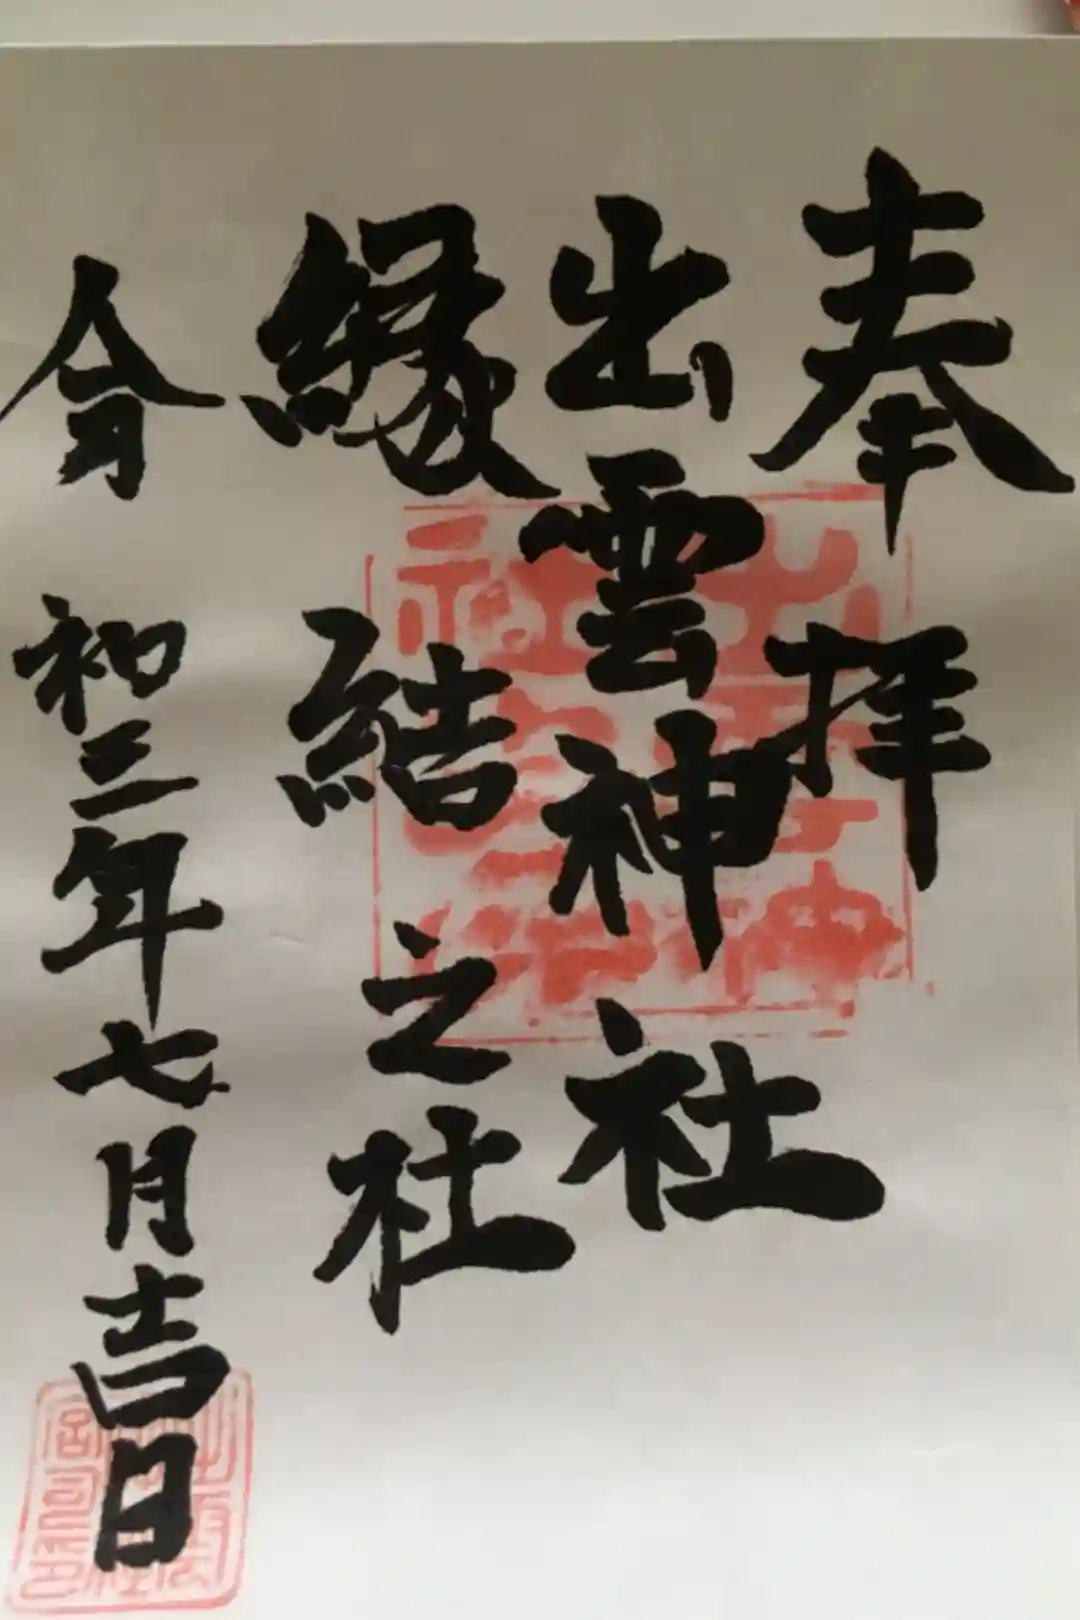 奉拝
出雲神社
縁結之社
令和三年七月吉日